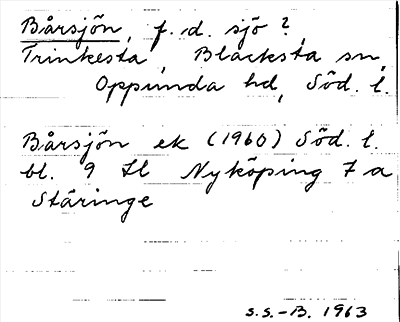 Bårsjön, f. d. sjö?,
Trinkesta, Blacksta sn,
Oppunda hd, Söd. l.
Bårsjön ek (1960) Söd. l.
bl. 9 Nyköping 7 a
Stäringe
S.S.-B. 1963